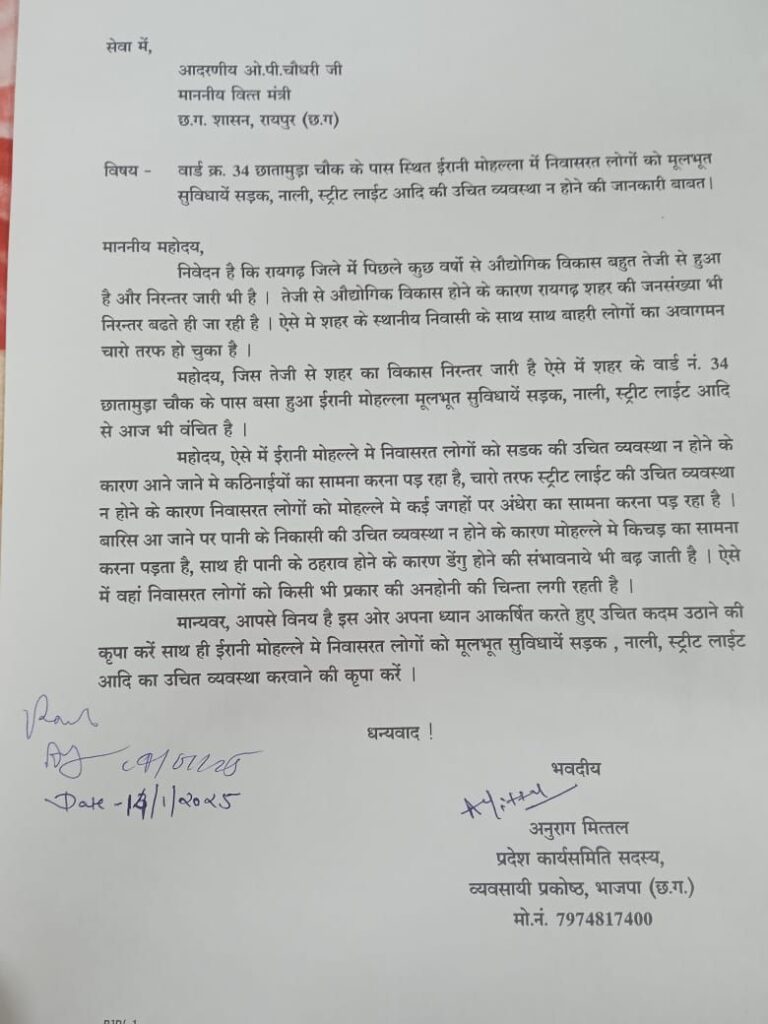 सेवा में,
आदरणीय ओ.पी.चौधरी जी
माननीय वित्त मंत्री
छ.ग. शासन, रायपुर (छ.ग)
विषय - वार्ड क्र. 34 छातामुड़ा चौक के पास स्थित ईरानी मोहल्ला में निवासरत लोगों को मूलभूत
सुविधायें सड़क, नाली, स्ट्रीट लाईट आदि की उचित व्यवस्था न होने की जानकारी बाबत।
माननीय महोदय,
निवेदन है कि रायगढ़ जिले में पिछले कुछ वर्षो से औद्योगिक विकास बहुत तेजी से हुआ
है और निरन्तर जारी भी है । तेजी से औद्योगिक विकास होने के कारण रायगढ़ शहर की जनसंख्या भी
निरन्तर बढते ही जा रही है । ऐसे मे शहर के स्थानीय निवासी के साथ साथ बाहरी लोगों का अवागमन
चारो तरफ हो चुका है ।
महोदय, जिस तेजी से शहर का विकास निरन्तर जारी है ऐसे में शहर के वार्ड नं. 34
छातामुड़ा चौक के पास बसा हुआ ईरानी मोहल्ला मूलभूत सुविधायें सड़क, नाली, स्ट्रीट लाईट आदि
से आज भी वंचित है ।
महोदय, ऐसे में ईरानी मोहल्ले मे निवासरत लोगों को सडक की उचित व्यवस्था न होने के
कारण आने जाने मे कठिनाईयों का सामना करना पड़ रहा है, चारो तरफ स्ट्रीट लाईट की उचित व्यवस्था
न होने के कारण निवासरत लोगों को मोहल्ले मे कई जगहों पर अंधेरा का सामना करना पड़ रहा है ।
बारिस आ जाने पर पानी के निकासी की उचित व्यवस्था न होने के कारण मोहल्ले मे किचड़ का सामना
करना पड़ता है, साथ ही पानी के ठहराव होने के कारण डेंगु होने की संभावनाये भी बढ़ जाती है । ऐसे
में वहां निवासरत लोगों को किसी भी प्रकार की अनहोनी की चिन्ता लगी रहती है ।
मान्यवर, आपसे विनय है इस ओर अपना ध्यान आकर्षित करते हुए उचित कदम उठाने की
कृपा करें साथ ही ईरानी मोहल्ले मे निवासरत लोगों को मूलभूत सुविधायें सड़क , नाली, स्ट्रीट लाईट
आदि का उचित व्यवस्था करवाने की कृपा करें ।
धन्यवाद !
भवदीय
Date - 14/1/2025
अनुराग मित्तल
प्रदेश कार्यसमिति सदस्य,
व्यवसायी प्रकोष्ठ, भाजपा (छ.ग.)
मो.नं. 7974817400